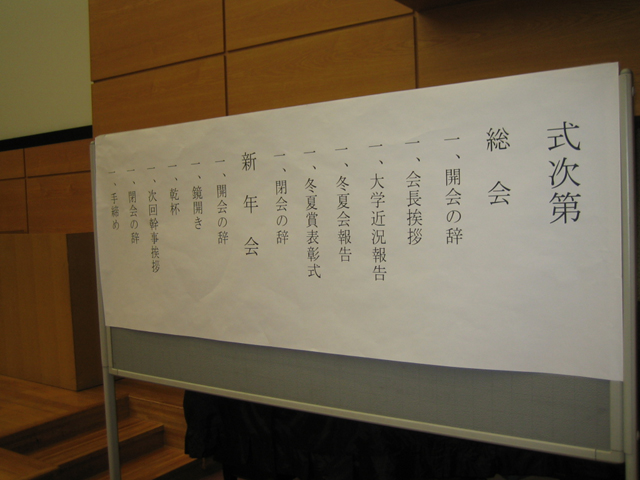 式次第
総会
一、開会の辞
一、会長挨拶
一、大学近況報告
一、冬夏会報告
一、冬夏賞表彰式
一、閉会の辞
新年会
一、開会の辞
一、鏡開き
一、乾杯
一、次回幹事挨拶
一、閉会の辞
一、手締め